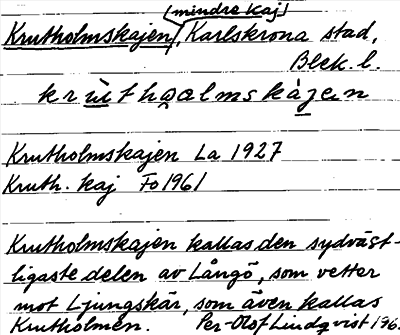 (mindre kaj)
Krutholmskajen, Karlskrona stad,
Blek. l.
krùthoalmskàjen
Krutholmskajen La 1927
Kruth. kaj Fo 1961
Krutholmskajen kallas den sydväst-
ligaste delen av Långö, som vetter
mot Ljungskär, som även kallas
Krutholmen. Per-Olof Lindqvist 196